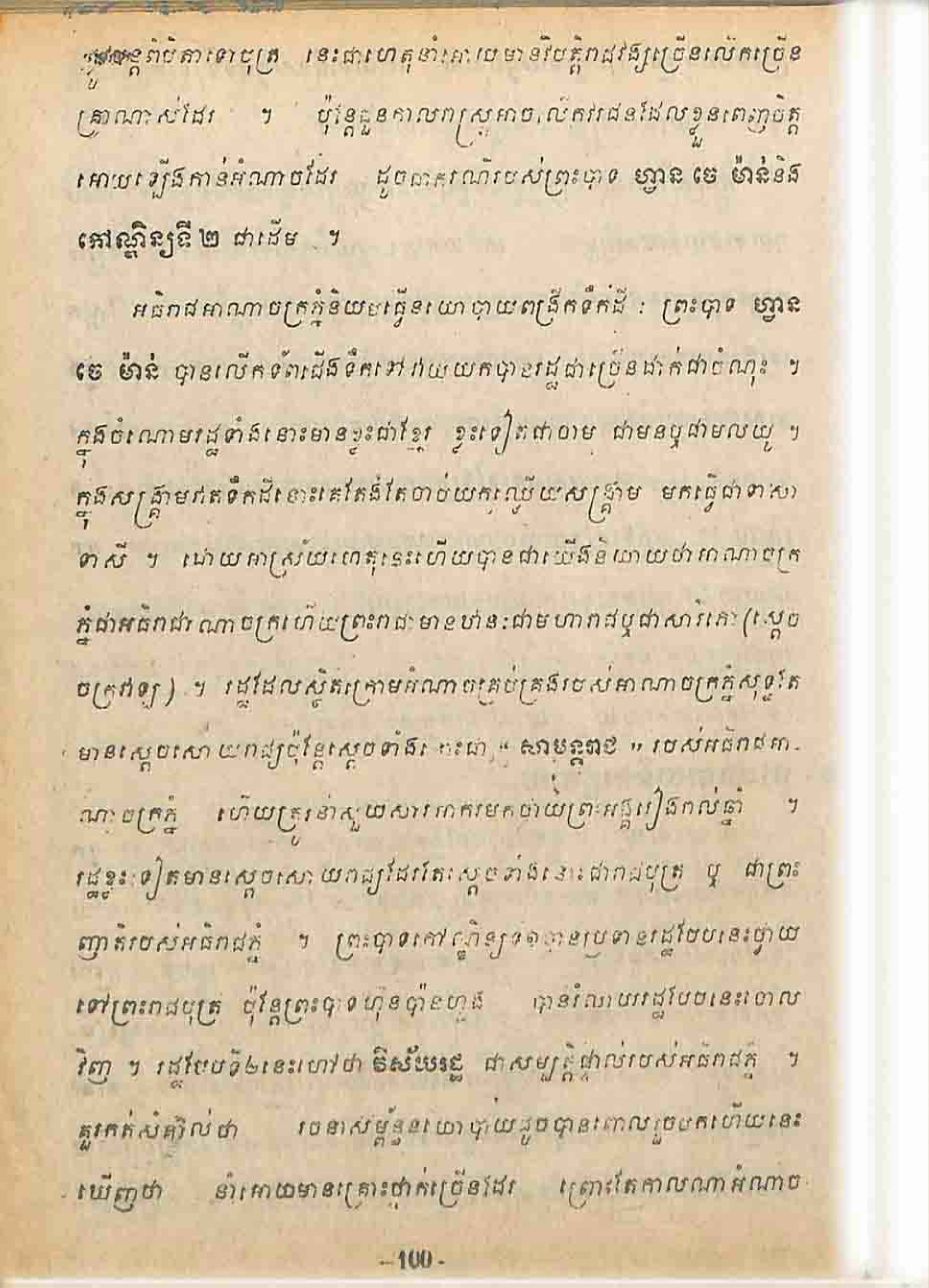 ពីបិតាទៅបុត្រ នេះជាហេតុនាំអោយមានវិបត្តិរាជវង្សច្រើនលើកច្រើន
គ្រាណាស់ដែរ ។ ប៉ុន្តែជួនកាលរាស្ត្រអាចលើកវរជនដែលខ្លួនពេញចិត្ត
អោយឡើងកាន់អំណាចដែរ ដូចជាករណីរបស់ព្រះបាទ ហ្វាន ចេ ម៉ាន់និង
កៅណ្ឌិន្យទី ២ ជាដើម ។
អធិរាជអាណាចក្រភ្នំនិយមធ្វើនយោបាយពង្រីកទឹកដី : ព្រះបាទ ហ្វាន
ចេ ម៉ាន់ បានលើកទ័ពជើងទឹកទៅវាយយកបានរដ្ឋជាច្រើនដាក់ជាចំណុះ ។
ក្នុងចំណោមរដ្ឋទាំងនោះមានខ្លះជាខ្មែរ ខ្លះទៀតជាចាម ជាមនឬជាមលយូ ។
ក្នុងសង្គ្រាមវាតទឹកដីនោះគេតែងតែចាប់យកឈ្លើយសង្គ្រាម មកធ្វើជាទាសា
ទាសី ។ ដោយអាស្រ័យហេតុនេះហើយបានជាយើងនិយាយថាអាណាចក្រ
ភ្នំជាអធិរាជាណាចក្រហើយព្រះរាជាមានឋានៈជាមហារាជឬជាសាវ៌ភៅ (ស្តេច
ចក្រវាឡ) ។ រដ្ឋដែលស្ថិតក្រោមអំណាចគ្រប់គ្រងរបស់អាណាចក្រភ្នំសុទ្ធតែ
មានស្តេចសោយរាជ្យប៉ុន្តែស្តេចទាំងនោះជា " សាមន្តរាជ " របស់អធិរាជអា-
ណាចក្រភ្នំ ហើយត្រូវនាំសួយសារអាករមកថ្វាយព្រះអង្គរៀងរាល់ឆ្នាំ ។
រដ្ឋខ្លះទៀតមានស្តេចសោយរាជ្យដែរតែស្តេចទាំងនោះជារាជបុត្រ ឬ ជាព្រះ
ញាតិរបស់អធិរាជភ្នំ ។ ព្រះបាទកៅណ្ឌិន្យទី១បានប្រទានរដ្ឋបែបនេះថ្វាយ
ទៅព្រះរាជបុត្រ ប៉ុន្តែព្រះបាទហ៊ុនប៉ានហួង បានរំលាយរដ្ឋបែបនេះចោល
វិញ ។ រដ្ឋបែបទី២នេះហៅថា វិស័យរដ្ឋ ជាសម្បត្តិផ្ទាល់របស់អធិរាជភ្នំ ។
គួរកត់សំគាល់ថា រចនាសម្ព័ន្ធនយោបាយដូចបានពោលរួចមកហើយនេះ
ឃើញថា នាំអោយមានគ្រោះថ្នាក់ច្រើនដែរ ព្រោះតែកាលណាអំណាច
- 100 -